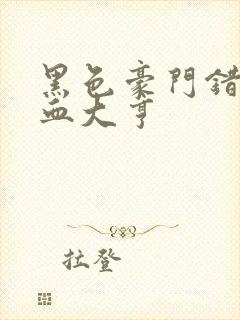 黑色豪門錯
血大亨
拉登